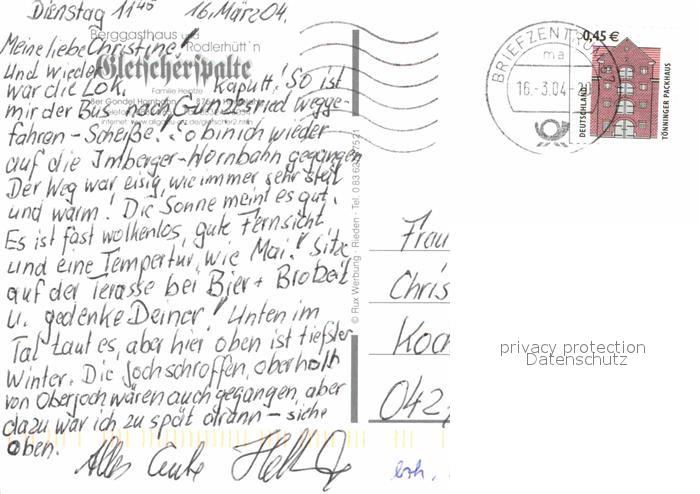 Dienstag 11⁴⁵ 16. März 04.
Berggasthaus und
Rodlerhütt'n
Gletscherspalte
Familie Heintze
Meine liebe Christine!
Und wieder
war die Lok. Kaputt! So ist
mir der Bus nach Gunzesried wegge-
fahren - Scheiße! So bin ich wieder
auf die Imberger-Hornbahn gegangen
Der Weg war eisig, wie immer sehr steil
und warm! Die Sonne meint es gut.
Es ist fast wolkenlos, gute Fernsicht
und eine Tempertur, wie Mai! Sitz
auf der Terasse bei Bier + Brotzeit
u. gedenke Deiner! Unten im
Tal taut es, aber hier oben ist tiefster
Winter. Die Jochschroffen, oberhalb
von Oberjoch wären auch gegangen, aber
dazu war ich zu spät drann - siehe
oben.
Alles Gute
© Rux Werbung · Rieden · Tel. 0 83 62
BRIEFZENTRUM
ma
16.-3.04-20
0,45 €
DEUTSCHLAND
TÖNNINGER PACKHAUS
Frau
Chris
Koc
042
privacy protection
Datenschutz